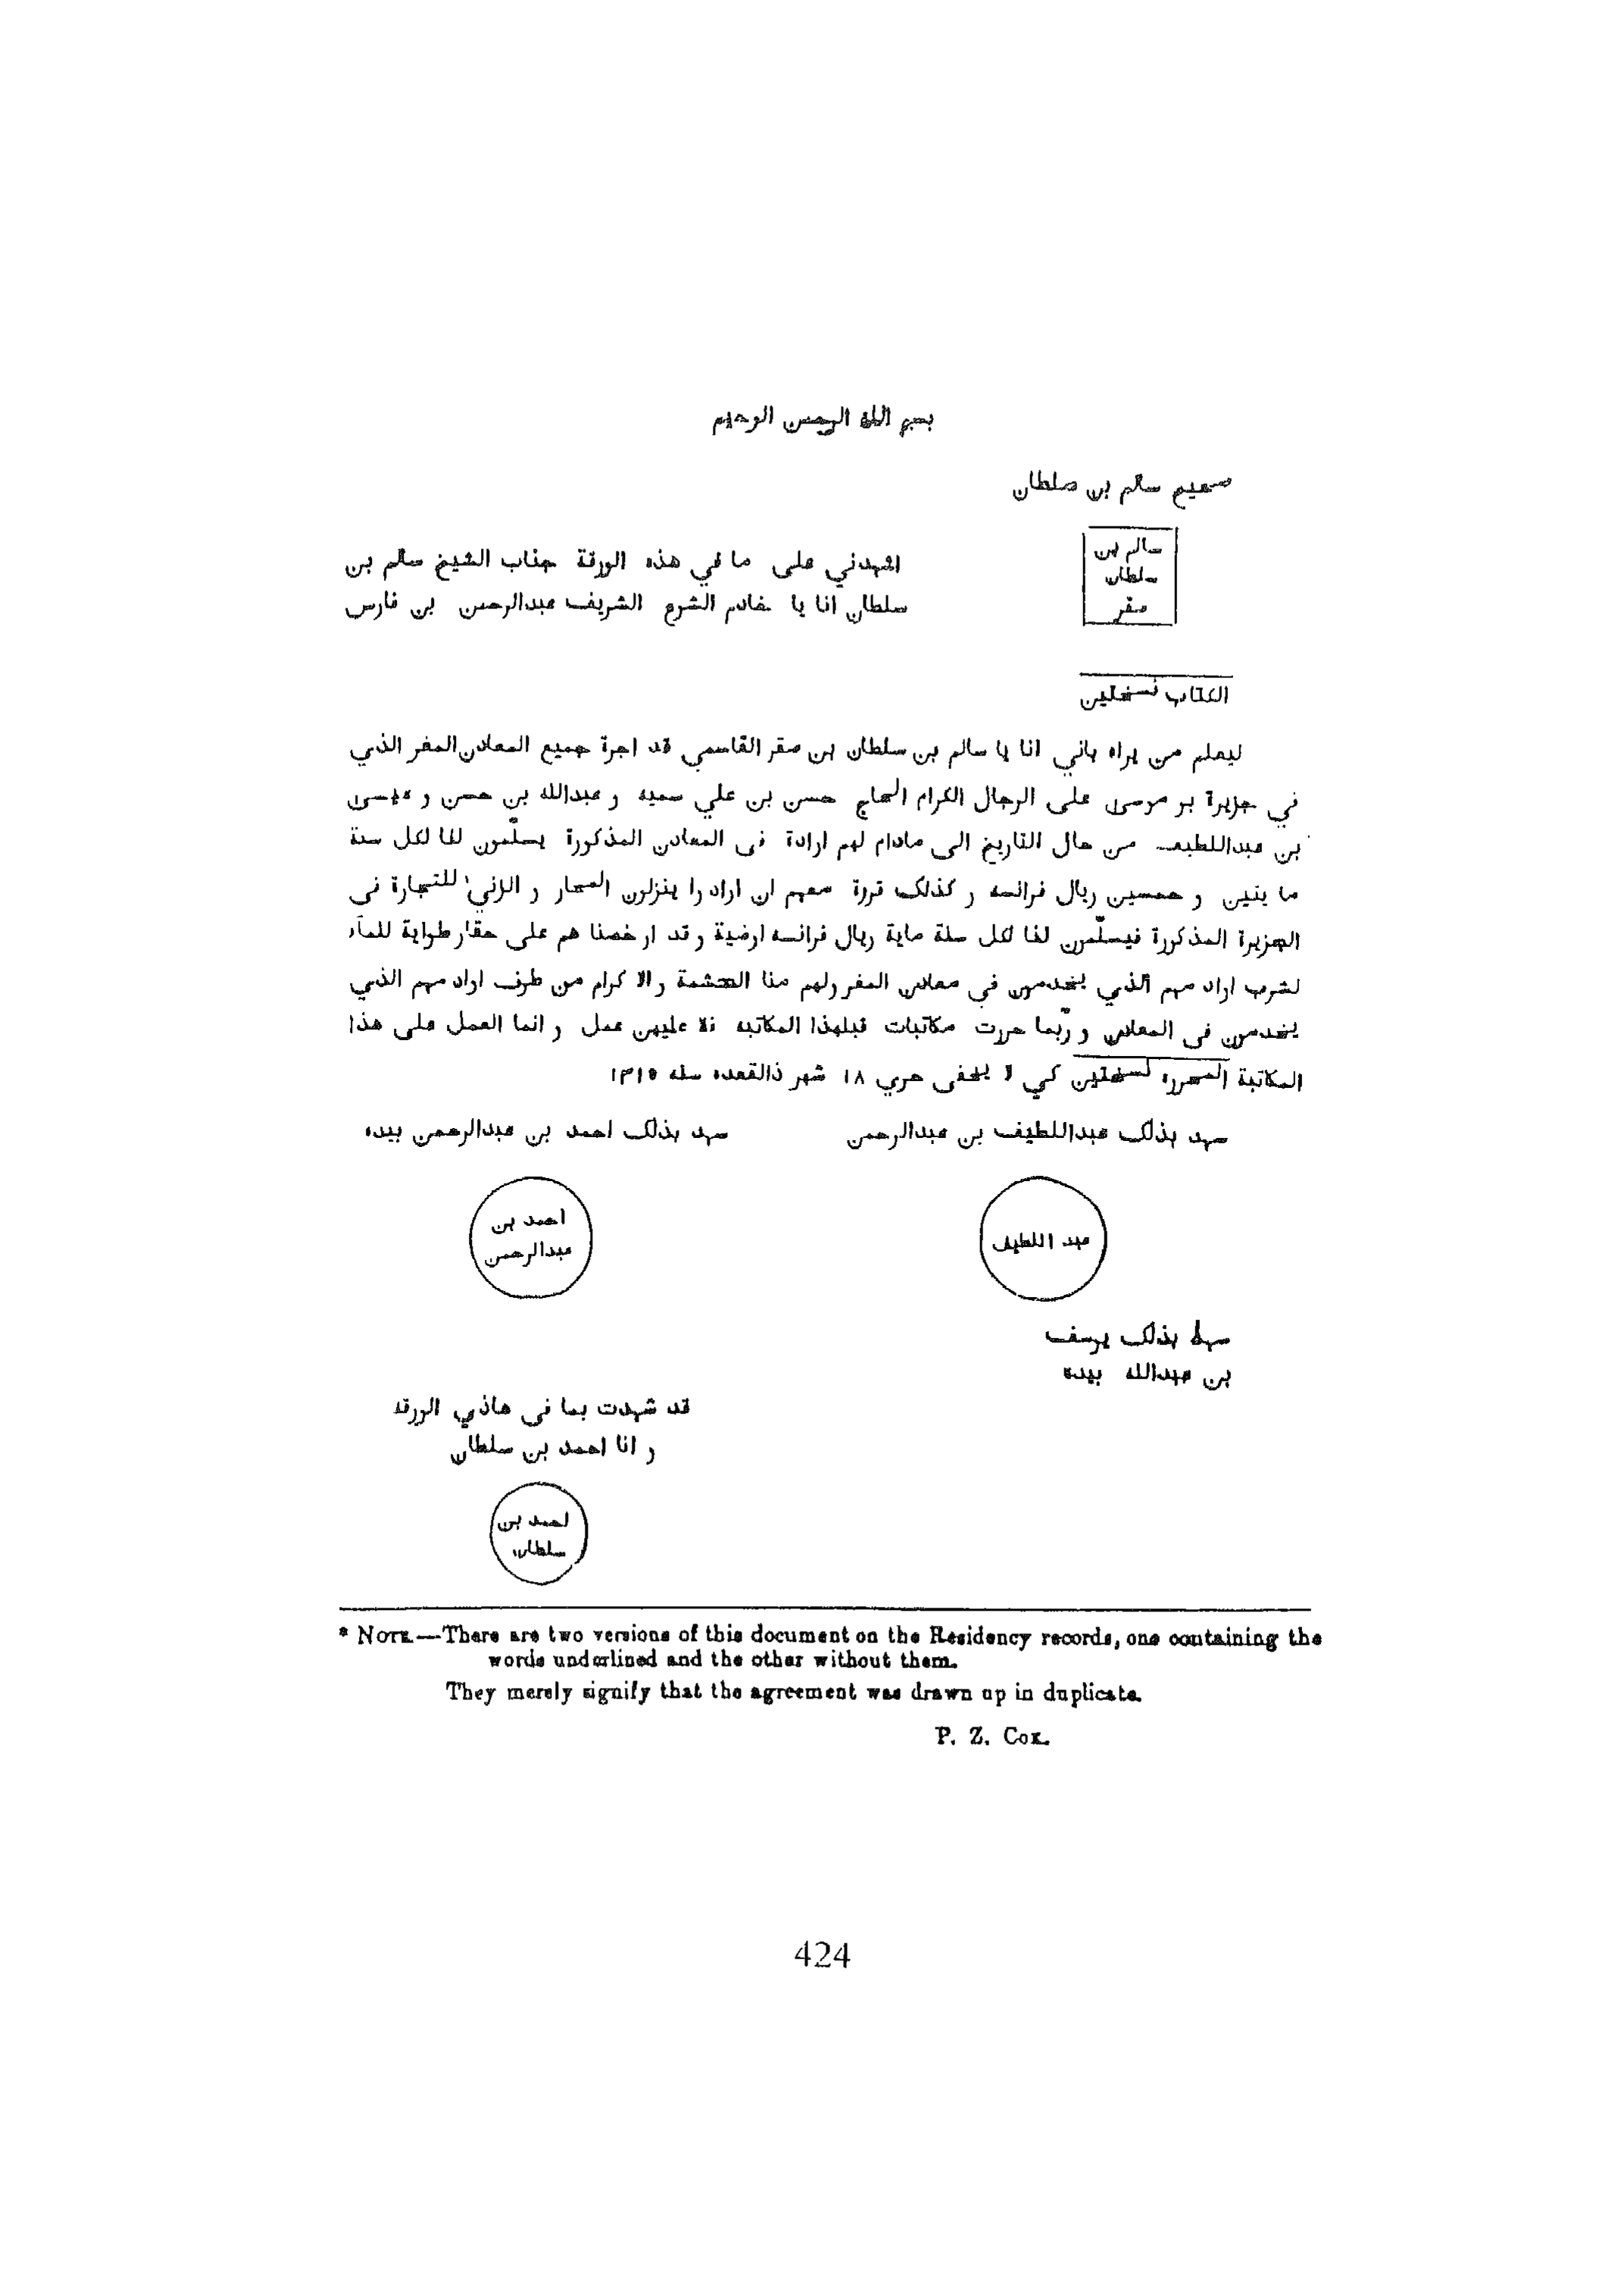 بسم الله الرحمن الرحيم
صحيح سالم بن سلطان
سالم بن
سلطان
صقر
اشهدني على ما في هذه الورقة جناب الشيخ سالم بن
سلطان انا يا خادم الشرع الشريف عبدالرحمن بن فارس
الكتاب نسختين
ليعلم من يراه باني انا يا سالم بن سلطان بن صقر القاسمي قد اجرة جميع المعادن المغر الذي
في جزيرة بو موسى على الرجال الكرام الحاج حسن بن علي سميه و عبدالله بن حسن و عيسى
بن عبداللطيف من حال التاريخ الى مادام لهم ارادة فى المعادن المذكورة يسلّمون لنا لكل سنة
ما يتين و خمسين ريال فرانسه و كذلك قررة معهم ان ارادوا ينزلون المحار و الزني للتجارة فى
الجزيرة المذكورة فيسلّمون لنا لكل سنة ماية ريال فرانسه ارضية و قد ارخصنا هم على حفار طواية للمآء
لشرب اواد مهم ألذي يخدمون في معادن المغر ولهم منا الحشمة و الا كرام من طرف اواد مهم الذي
يخدمون فى المعادن و ربّما حررت مكاتبات قبلهذا المكاتبه فلا عليهن عمل و انما العمل على هذا
المكاتبة المحرره نسختين كي لا يخفى حري ١٨ شهر ذالقعده سنه ١٣١٥
سهد بذلک عبداللطيف بن عبدالرحمن
سهد بذلک احمد بن عبدالرحمن بيده
عبد اللطيف
احمد بن
عبدالرحمن
سهد بذلک يوسف
بن عبدالله بيده
قد شهدت بما فى هاذي الورقه
و انا احمد بن سلطان
احمد بن
سلطان
* NOTE.—There are two versions of this document on the Residency records, one containing the
words underlined and the other without them.
They merely signify that the agreement was drawn up in duplicate.
P. Z. COX.
424